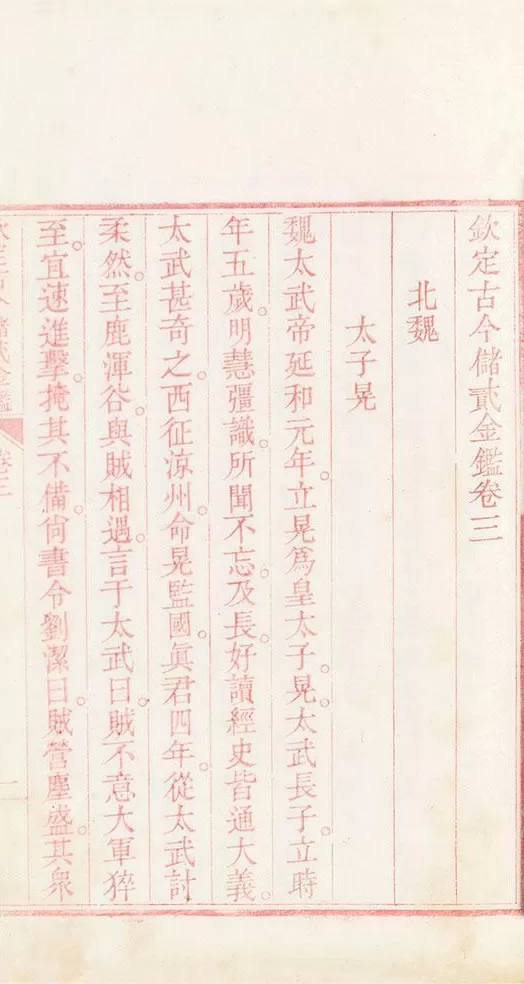 欽定古今儲貳金鑑卷三
北魏
太子晃
魏太武帝延和元年。立晃爲皇太子。晃。太武長子。立時
年五歲。明慧彊識。所聞不忘。及長。好讀經史皆通大義。
太武甚奇之。西征涼州。命晃監國。眞君四年。從太武討
柔然。至鹿渾谷。與賊相遇。言于太武曰。賊不意大軍猝
至。宜速進擊。掩其不備。尙書令劉潔曰。賊營塵盛。其衆